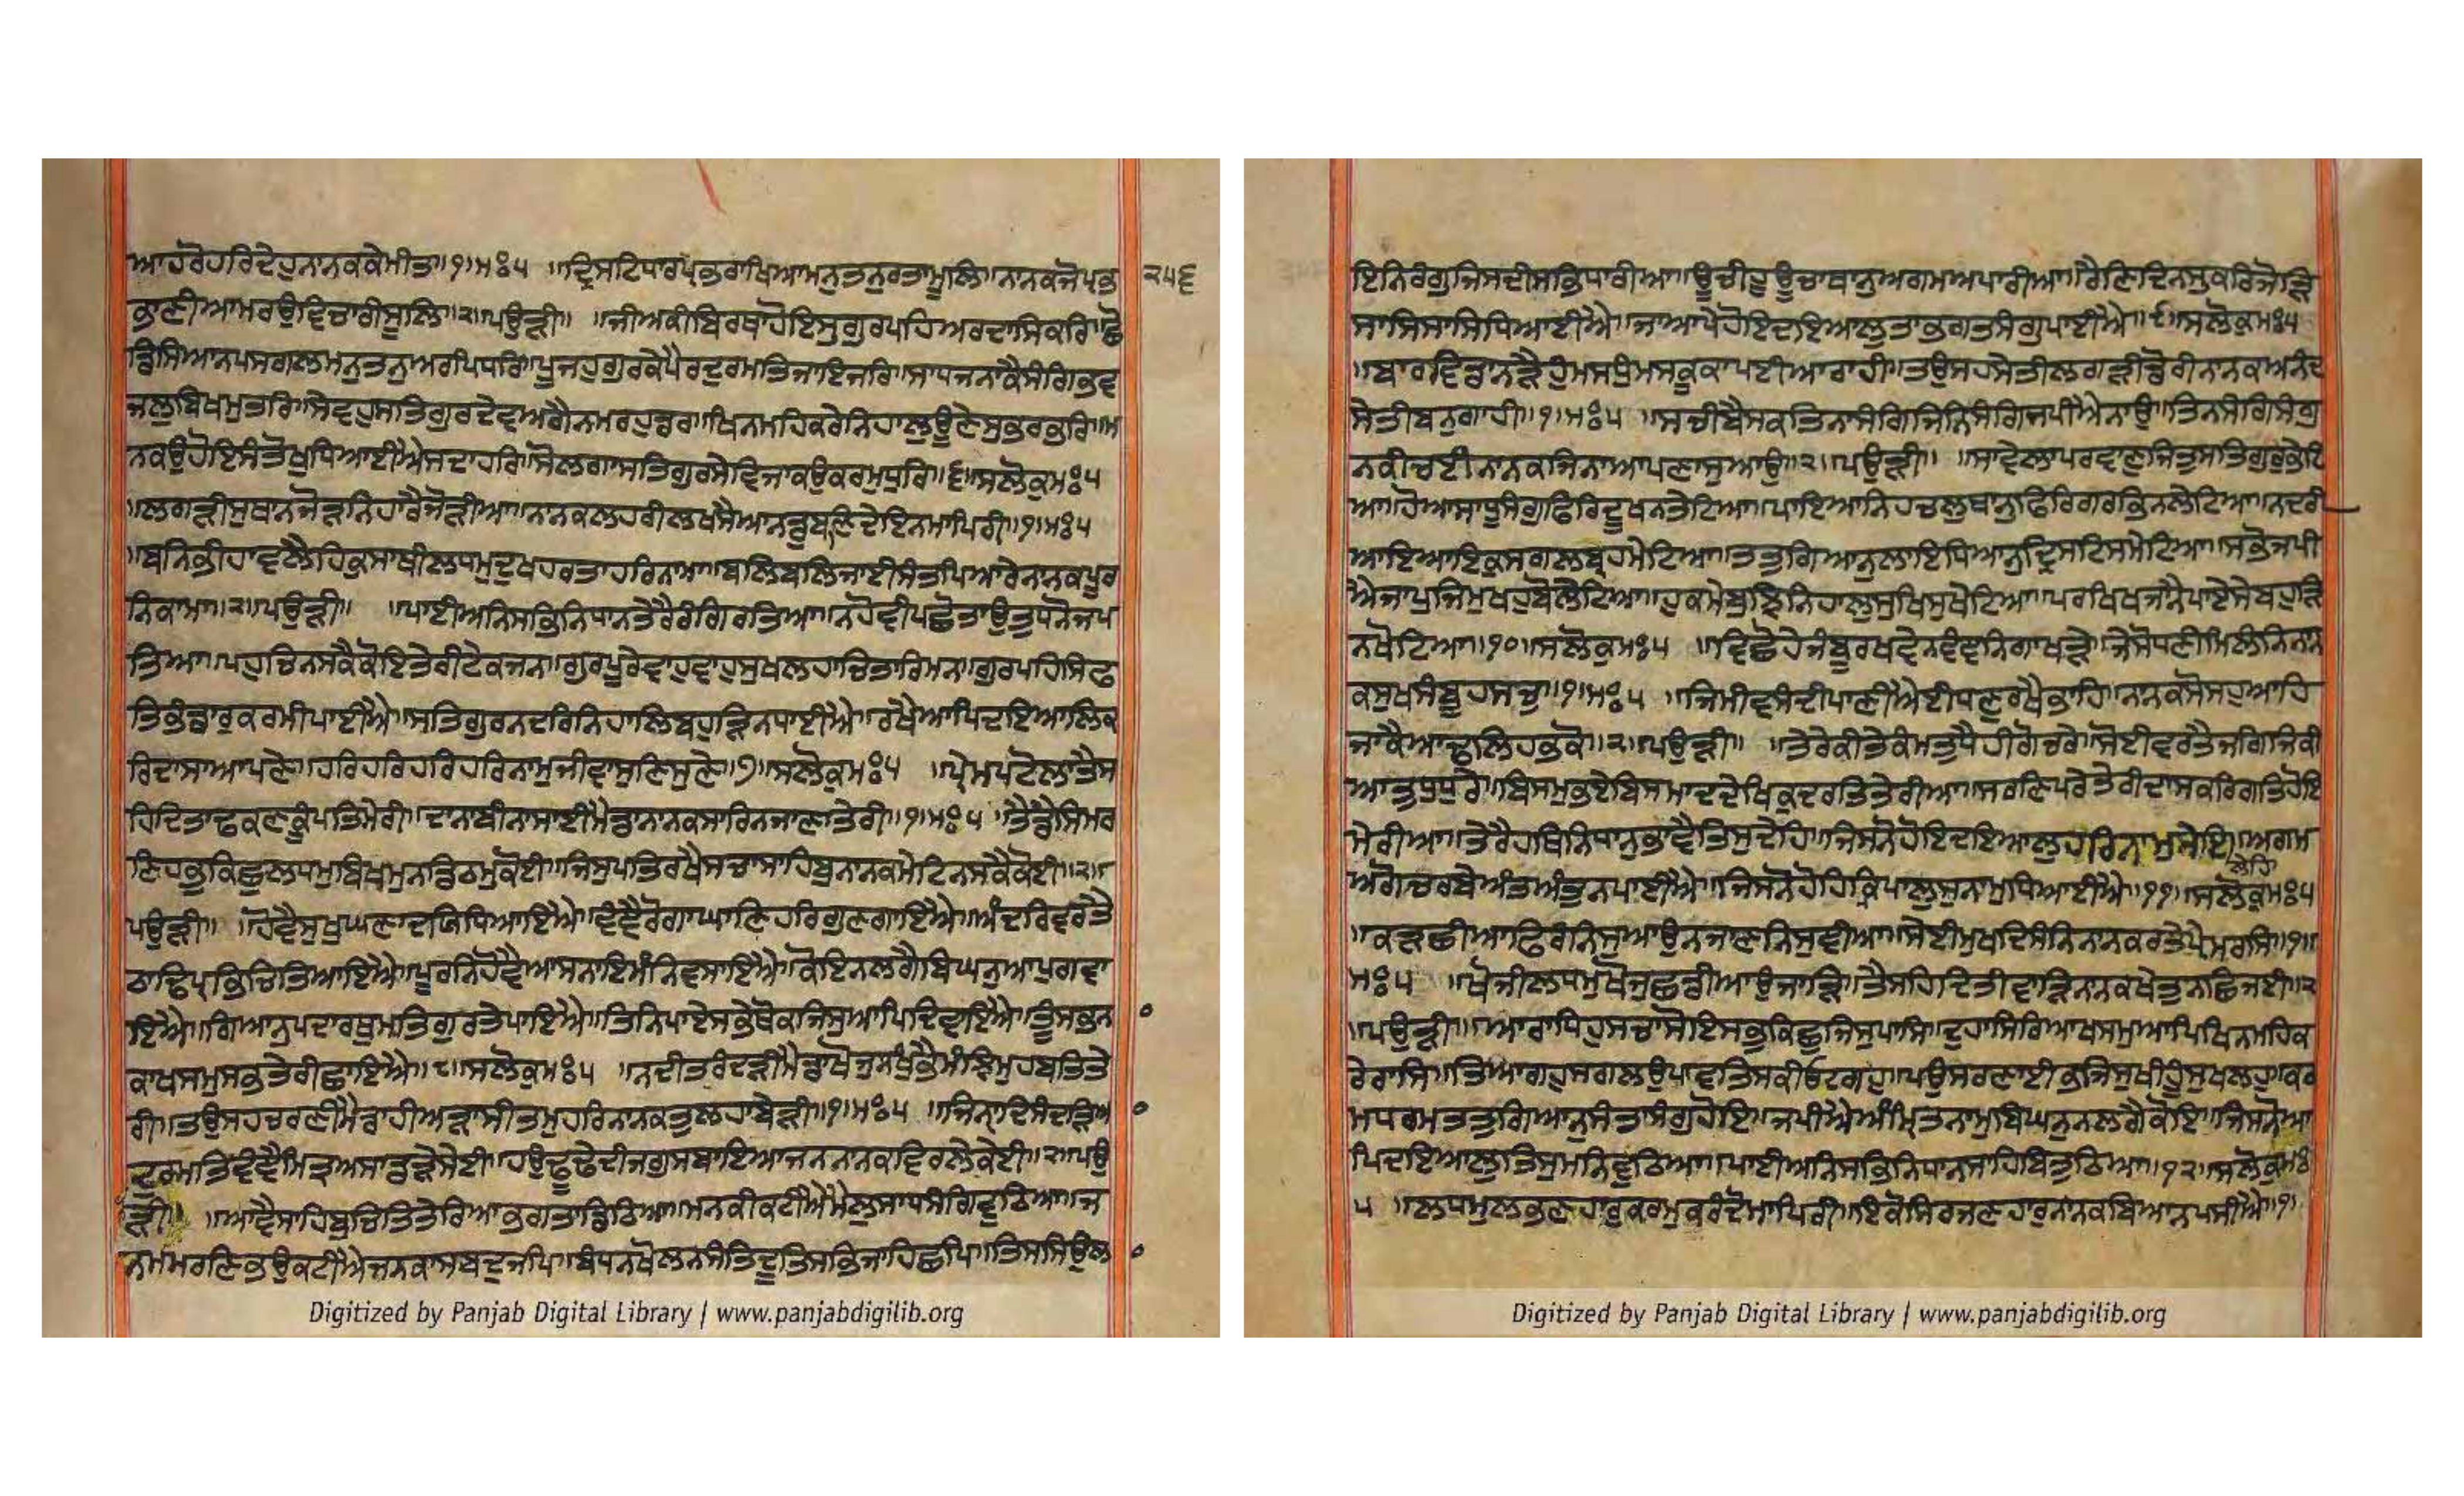 ਆਹਰੋਹਰਿਦੇਹੁਨਾਨਕਕੇਮੀਤ॥੧॥ਮਃ੫ ॥ਦ੍ਰਿਸਟਿਧਾਰਪ੍ਰਭਰਾਖਿਆਮਨੁਤਨੁਰਤਾਮੂਲਿ॥ਨਾਨਕਜੋਪ੍ਰਭ ੨੫੬
ਭਾਣੀਆਮਰਉਵਿਚਾਰੀਸੂਲਿ॥੨॥ਪਉੜੀ॥ ॥ਜੀਅਕੀਬਿਰਥਾਹੋਇਸੁਗੁਰਪਹਿਅਰਦਾਸਿਕਰਿ॥ਛੋ
ਡਿਸਿਆਨਪਸਗਲਮਨੁਤਨੁਅਰਪਿਧਰਿ॥ਪੂਜਹੁਗੁਰਕੇਪੈਰਦੁਰਮਤਿਜਾਇਜਰਿ॥ਸਾਧਜਨਾਕੈਸੰਗਿਭਵ
ਜਲੁਬਿਖਮੁਤਰਿ॥ਸੇਵਹੁਸਤਿਗੁਰਦੇਵਅਗੈਨਮਰਹੁਡਰਿ॥ਖਿਨਮਹਿਕਰੇਨਿਹਾਲੁਊਣੇਸੁਭਰਭਰਿ॥ਮ
ਨਕਉਹੋਇਸੰਤੋਖੁਧਿਆਈਐਸਦਾਹਰਿ॥ਸੋਲਗਾਸਤਿਗੁਰਸੇਵਿਜਾਕਉਕਰਮੁਧੁਰਿ॥੬॥ਸਲੋਕੁਮਃ੫
॥ਲਗੜੀਸੁਥਾਨਜੋੜਨਿਹਾਰੈਜੋੜੀਆ॥ਨਾਨਕਲਹਰੀਲਖਸੈਆਨਡੁਬਣਿਦੇਇਨਮਾਪਿਰੀ॥੧॥ਮਃ੫
॥ਬਨਿਭੀਹਾਵਲੈਹਿਕੁਸਾਥੀਲਧਮੁਦੁਖਹਰਤਾਹਰਿਨਾਮਾ॥ਬਲਿਬਲਿਜਾਈਸੰਤਪਿਆਰੇਨਾਨਕਪੂਰ
ਨਿਕਾਮਾ॥੨॥ਪਉੜੀ॥ ॥ਪਾਈਅਨਿਸਭਿਨਿਧਾਨਤੇਰੈਰੰਗਿਰਤਿਆ॥ਨਹੋਵੀਪਛੋਤਾਉਤੁਧਨੋਜਪ
ਤਿਆ॥ਪਹੁਚਿਨਸਕੈਕੋਇਤੇਰੀਟੇਕਜਨਾ॥ਗੁਰਪੂਰੇਵਾਹੁਵਾਹੁਸੁਖਲਹਾਚਿਤਾਰਿਮਨਾ॥ਗੁਰਪਹਿਸਿਫ
ਤਿਭੰਡਾਰੁਕਰਮੀਪਾਈਐ॥ਸਤਿਗੁਰਨਦਰਿਨਿਹਾਲਿਬਹੁੜਿਨਧਾਈਐ॥ਰਖੈਆਪਿਦਇਆਲਿਕ
ਰਿਦਾਸਾਆਪਣੇ॥ਹਰਿਹਰਿਹਰਿਹਰਿਨਾਮੁਜੀਵਾਸੁਣਿਸੁਣੇ॥੭॥ਸਲੋਕੁਮਃ੫ ॥ਪ੍ਰੇਮਪਟੋਲਾਤੈਸ
ਹਿਦਿਤਾਢਕਣਕੂਪਤਿਮੇਰੀ॥ਦਾਨਾਬੀਨਾਸਾਈਮੈਡਾਨਾਨਕਸਾਰਿਨਜਾਣਾਤੇਰੀ॥੧॥ਮਃ੫ ॥ਤੈਡੈਸਿਮਰ
ਣਿਹਭੁਕਿਛੁਲਧਮੁਬਿਖਮੁਨਡਿਠਮੁਕੋਈ॥ਜਿਸੁਪਤਿਰਖੈਸਚਾਸਾਹਿਬੁਨਾਨਕਮੇਟਿਨਸਕੈਕੋਈ॥੨॥
ਪਉੜੀ॥ ॥ਹੋਵੈਸੁਖੁਘਣਾਦਯਿਧਿਆਇਐ॥ਵੰਞੈਰੋਗਾਘਾਣਿਹਰਿਗੁਣਗਾਇਐ॥ਅੰਦਰਿਵਰਤੈ
ਠਾਢਿਪ੍ਰਭਿਚਿਤਿਆਇਐ॥ਪੂਰਨਿਹੋਵੈਆਸਨਾਇਮੰਨਿਵਸਾਇਐ॥ਕੋਇਨਲਗੈਬਿਘਨੁਆਪੁਗਵਾ
ਇਐ॥ਗਿਆਨੁਪਦਾਰਥੁਮਤਿਗੁਰਤੇਪਾਇਐ॥ਤਿਨਿਪਾਏਸਭੇਥੋਕਜਿਸੁਆਪਿਦਿਵਾਇਐ॥ਤੂੰਸਭਨ
ਕਾਖਸਮੁਸਭਤੇਰੀਛਾਇਐ॥੮॥ਸਲੋਕੁਮਃ੫ ॥ਨਦੀਤਰੰਦੜੀਮੈਡਾਖੋਜੁਨਖੁੰਭੈਮੰਝਿਮੁਹਬਤਿਤੇ
ਰੀ॥ਤਉਸਹਚਰਣੀਮੈਡਾਹੀਅੜਾਸੀਤਮੁਹਰਿਨਾਨਕਤੁਲਹਾਬੇੜੀ॥੧॥ਮਃ੫ ॥ਜਿਨ੍ਹਾਦਿਸੰਦੜਿਆ
ਦੁਰਮਤਿਵੰਞੈਮਿਤ੍ਰਅਸਾਡੜੇਸੇਈ॥ਹਉਢੂਢੇਦੀਜਗੁਸਬਾਇਆਜਨਨਾਨਕਵਿਰਲੇਕੇਈ॥੨॥ਪਉ
ੜੀ॥ ॥ਆਵੈਸਾਹਿਬੁਚਿਤਿਤੇਰਿਆਭਗਤਾਡਿਠਿਆ॥ਮਨਕੀਕਟੀਐਮੈਲੁਸਾਧਸੰਗਿਵੁਠਿਆ॥ਜ
ਨਮਮਰਣਿਭਉਕਟੀਐਜਨਕਾਸਬਦੁਜਪਿ॥ਬੰਧਨਖੋਲਨਸੰਤਿਦੂਤਿਸਭਿਜਾਹਿਛਪਿ॥ਤਿਸਸਿਉਲ
Digitized by Panjab Digital Library | www.panjabdigilib.org
ਇਨਿਰੰਗੁਜਿਸਦੀਸਭਿਧਾਰੀਆ॥ਊਚੀਹੂਊਚਾਥਾਨੁਅਗਮਅਪਾਰੀਆ॥ਰੈਣਿਦਿਨਸੁਕਰਿਜੋੜਿ
ਸਾਸਿਸਾਸਿਧਿਆਈਐ॥ਜਾਆਪੇਹੋਇਦਇਆਲੁਤਾਭਗਤਸੰਗੁਪਾਈਐ॥੯॥ਸਲੋਕੁਮਃ੫
॥ਬਾਰਵਿਡਾਨੜੈਹੁੰਮਸਧੁੰਮਸਕੂਕਾਪਈਆਰਾਹੀ॥ਤਉਸਹਸੇਤੀਲਗੜੀਡੋਰੀਨਾਨਕਅਨੰਦ
ਸੇਤੀਬਨੁਗਾਹੀ॥੧॥ਮਃ੫ ॥ਸਚੀਬੈਸਕਤਿਨਾਸੰਗਿਜਿਨਿਸੰਗਿਜਪੀਐਨਾਉ॥ਤਿਨਸੰਗਿਸੰਗੁ
ਨਕੀਚਈਨਾਨਕਜਿਨਾਆਪਣਾਸੁਆਉ॥੨॥ਪਉੜੀ॥ ॥ਸਾਵੇਲਾਪਰਵਾਣੁਜਿਤੁਸਤਿਗੁਰੁਭੇਟਿ
ਆ॥ਹੋਆਸਾਧੂਸੰਗੁਫਿਰਿਦੂਖਨਤੇਟਿਆ॥ਪਾਇਆਨਿਹਚਲੁਥਾਨੁਫਿਰਿਗਰਭਿਨਲੇਟਿਆ॥ਨਦਰੀ
ਆਇਆਇਕੁਸਗਲਬ੍ਰਹਮੇਟਿਆ॥ਤਤੁਗਿਆਨੁਲਾਇਧਿਆਨੁਦ੍ਰਿਸਟਿਸਮੇਟਿਆ॥ਸਭੋਜਪੀ
ਐਜਾਪੁਜਿਮੁਖਹੁਬੋਲੇਟਿਆ॥ਹੁਕਮੇਬੁਝਿਨਿਹਾਲੁਸੁਖਿਸੁਖੇਟਿਆ॥ਪਰਖਿਖਜਾਨੈਪਾਏਸੇਬਹੁੜਿ
ਨਖੋਟਿਆ॥੧੦॥ਸਲੋਕੁਮਃ੫ ॥ਵਿਛੋਹੇਜੰਬੂਰਖਵੇਨਵੰਞਨਿਗਾਖੜੇ॥ਜੇਸੋਧਣੀਮਿਲੰਨਿਨਾਨ
ਕਸੁਖਸੰਬੂਹਸਚੁ॥੧॥ਮਃ੫ ॥ਜਿਮੀਵਸੰਦੀਪਾਣੀਐਈਧਣੁਰਖੈਭਾਹਿ॥ਨਾਨਕਸੋਸਹੁਆਹਿ
ਜਾਕੈਆਢਲਿਹਭੁਕੋ॥੨॥ਪਉੜੀ॥ ॥ਤੇਰੇਕੀਤੇਕੰਮਤੁਧੈਹੀਗੋਚਰੇ॥ਸੋਈਵਰਤੈਜਗਿਜਿਕੀ
ਆਤੁਧੁਧੁਰੇ॥ਬਿਸਮੁਭਏਬਿਸਮਾਦਦੇਖਿਕੁਦਰਤਿਤੇਰੀਆ॥ਸਰਣਿਪਰੇਤੇਰੀਦਾਸਕਰਿਗਤਿਹੋਇ
ਮੇਰੀਆ॥ਤੇਰੈਹਥਿਨਿਧਾਨੁਭਾਵੈਤਿਸੁਦੇਹਿ॥ਜਿਸਨੋਹੋਇਦਇਆਲੁਹਰਿਨਾਮੁਸੇਇ॥ਅਗਮ
ਲੇਹਿ
ਅਗੋਚਰਬੇਅੰਤਅੰਤੁਨਪਾਈਐ॥ਜਿਸਨੋਹੋਹਿਕ੍ਰਿਪਾਲੁਸੁਨਾਮੁਧਿਆਈਐ॥੧੧॥ਸਲੋਕੁਮਃ੫
॥ਕੜਛੀਆਫਿਰੰਨਿਸੁਆਉਨਜਾਣਨਿਸੁਞੀਆ॥ਸੇਈਮੁਖਦਿਸੰਨਿਨਾਨਕਰਤੇਪ੍ਰੇਮਰਸਿ॥੧॥
ਮਃ੫ ॥ਖੋਜੀਲਧਮੁਖੋਜੁਛਡੀਆਉਜਾੜਿ॥ਤੈਸਹਿਦਿਤੀਵਾੜਿਨਾਨਕਖੇਤੁਨਛਿਜਈ॥੨
॥ਪਉੜੀ॥ ॥ਆਰਾਧਿਹੁਸਚਾਸੋਇਸਭੁਕਿਛੁਜਿਸੁਪਾਸਿ॥ਦੁਹਾਸਿਰਿਆਖਸਮੁਆਪਿਖਿਨਮਹਿਕ
ਰੇਰਾਸਿ॥ਤਿਆਗਹੁਸਗਲਉਪਾਵਤਿਸਕੀਓਟਗਹੁ॥ਪਉਸਰਣਾਈਭਜਿਸੁਖੀਹੂੰਸੁਖਲਹੁ॥ਕਰ
ਮਧਰਮਤਤੁਗਿਆਨੁਸੰਤਾਸੰਗੁਹੋਇ॥ਜਪੀਐਅੰਮ੍ਰਿਤਨਾਮੁਬਿਘਨੁਨਲਗੈਕੋਇ॥ਜਿਸਨੋਆ
ਪਿਦਇਆਲੁਤਿਸੁਮਨਿਵੁਠਿਆ॥ਪਾਈਅਨਿਸਭਿਨਿਧਾਨਸਾਹਿਬਿਤੁਠਿਆ॥੧੨॥ਸਲੋਕੁਮਃ
੫ ॥ਲਧਮੁਲਭਣਹਾਰੁਕਰਮੁਕਰੰਦੋਮਾਪਿਰੀ॥ਇਕੋਸਿਰਜਣਹਾਰੁਨਾਨਕਬਿਆਨਪਸੀਐ॥੧॥
Digitized by Panjab Digital Library | www.panjabdigilib.org